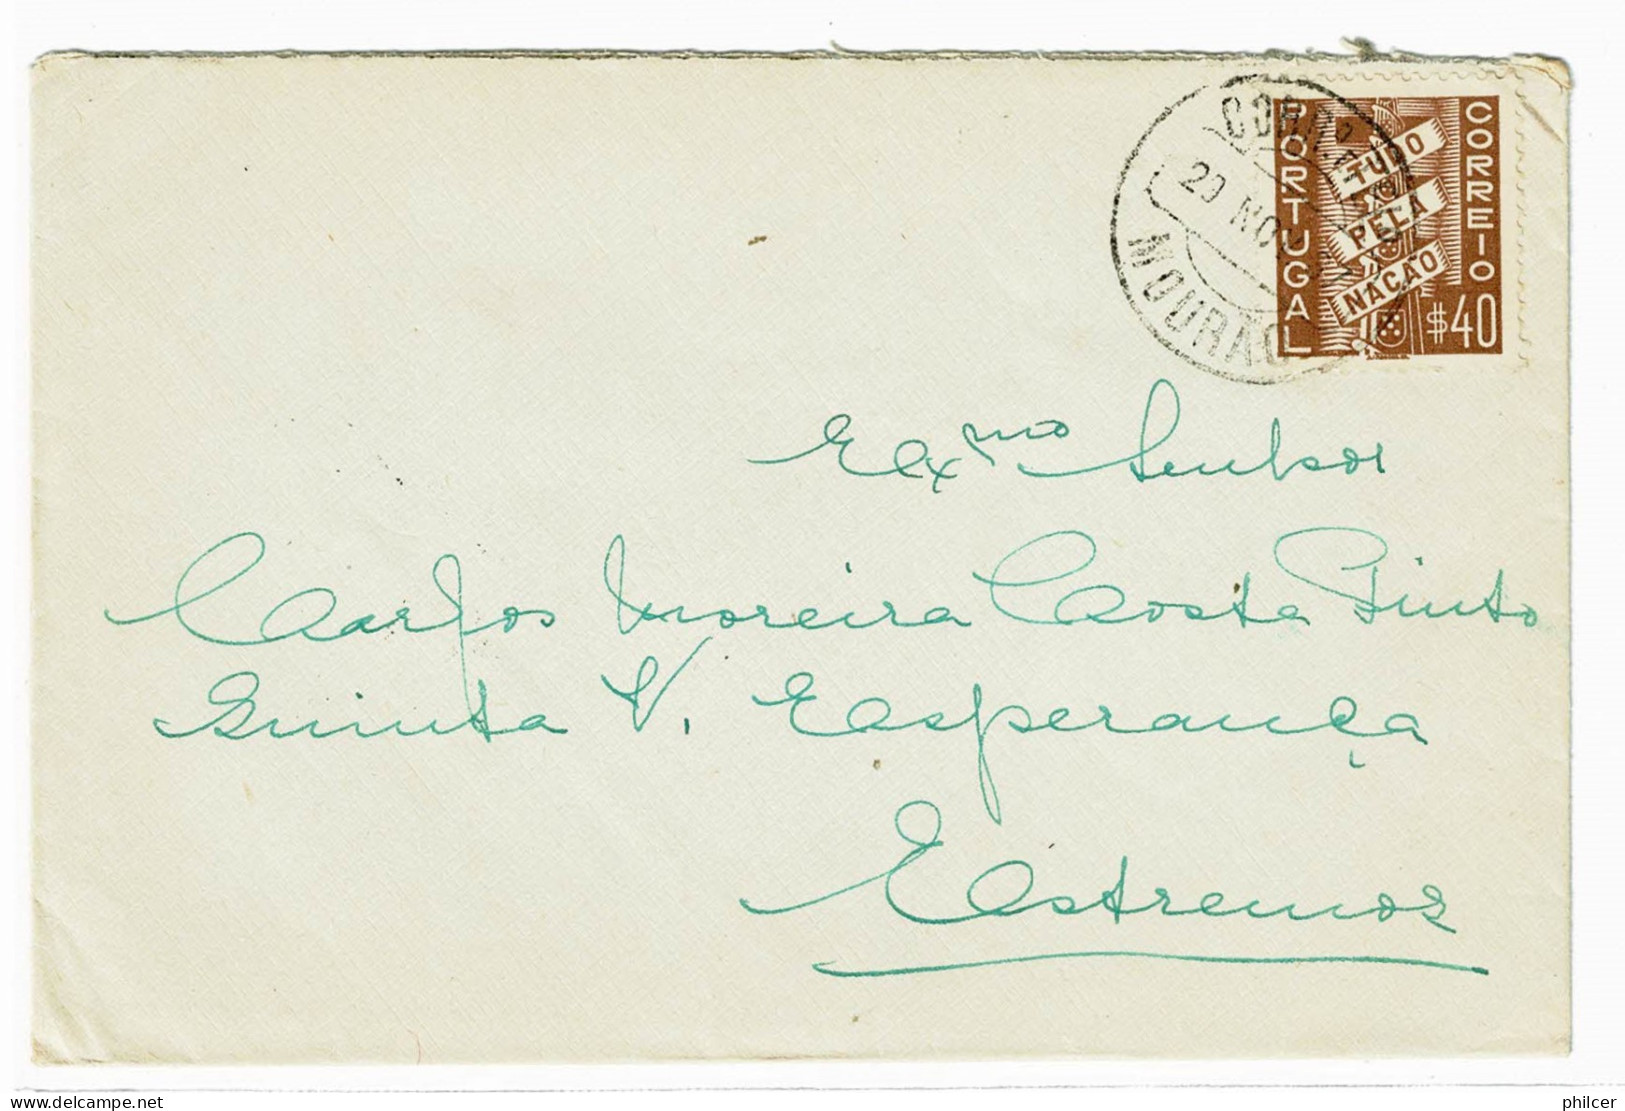 CORREIO
PORTUGAL
TUDO
PELA
NAÇÃO
$40
20 NOV
MOURÃO
Exmo Senhor
Carlos Moreira Costa Pinto
Quinta N. Esperança
Estremoz
www.delcampe.net
philcer